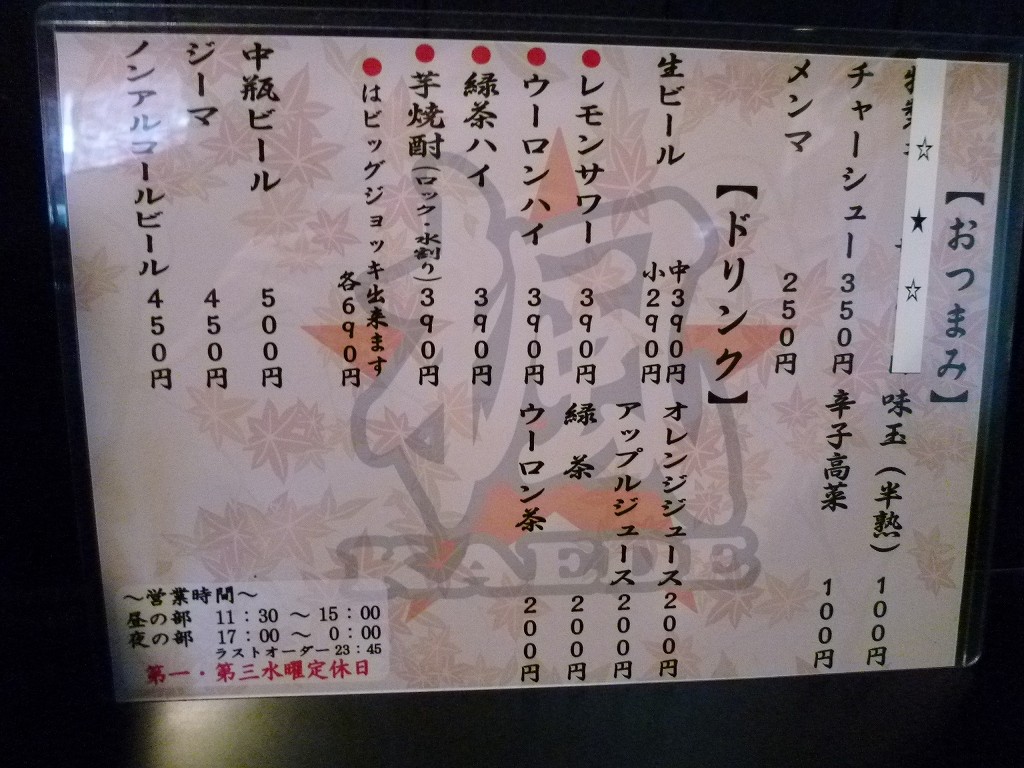 【おつまみ】
☆ ★ ☆
味玉(半熟) 100円
チャーシュー 350円
辛子高菜 100円
メンマ 250円
【ドリンク】
生ビール 中390円
小290円
●レモンサワー 390円
●ウーロンハイ 390円
●緑茶ハイ 390円
●芋焼酎(ロック・水割り) 390円
●はビッグジョッキ出来ます
各690円
中瓶ビール 500円
ジーマ 450円
ノンアルコールビール 450円
オレンジジュース 200円
アップルジュース 200円
緑茶 200円
ウーロン茶 200円
KAEDE
～営業時間～
昼の部 11:30 ～ 15:00
夜の部 17:00 ～ 0:00
ラストオーダー 23:45
第一・第三水曜定休日